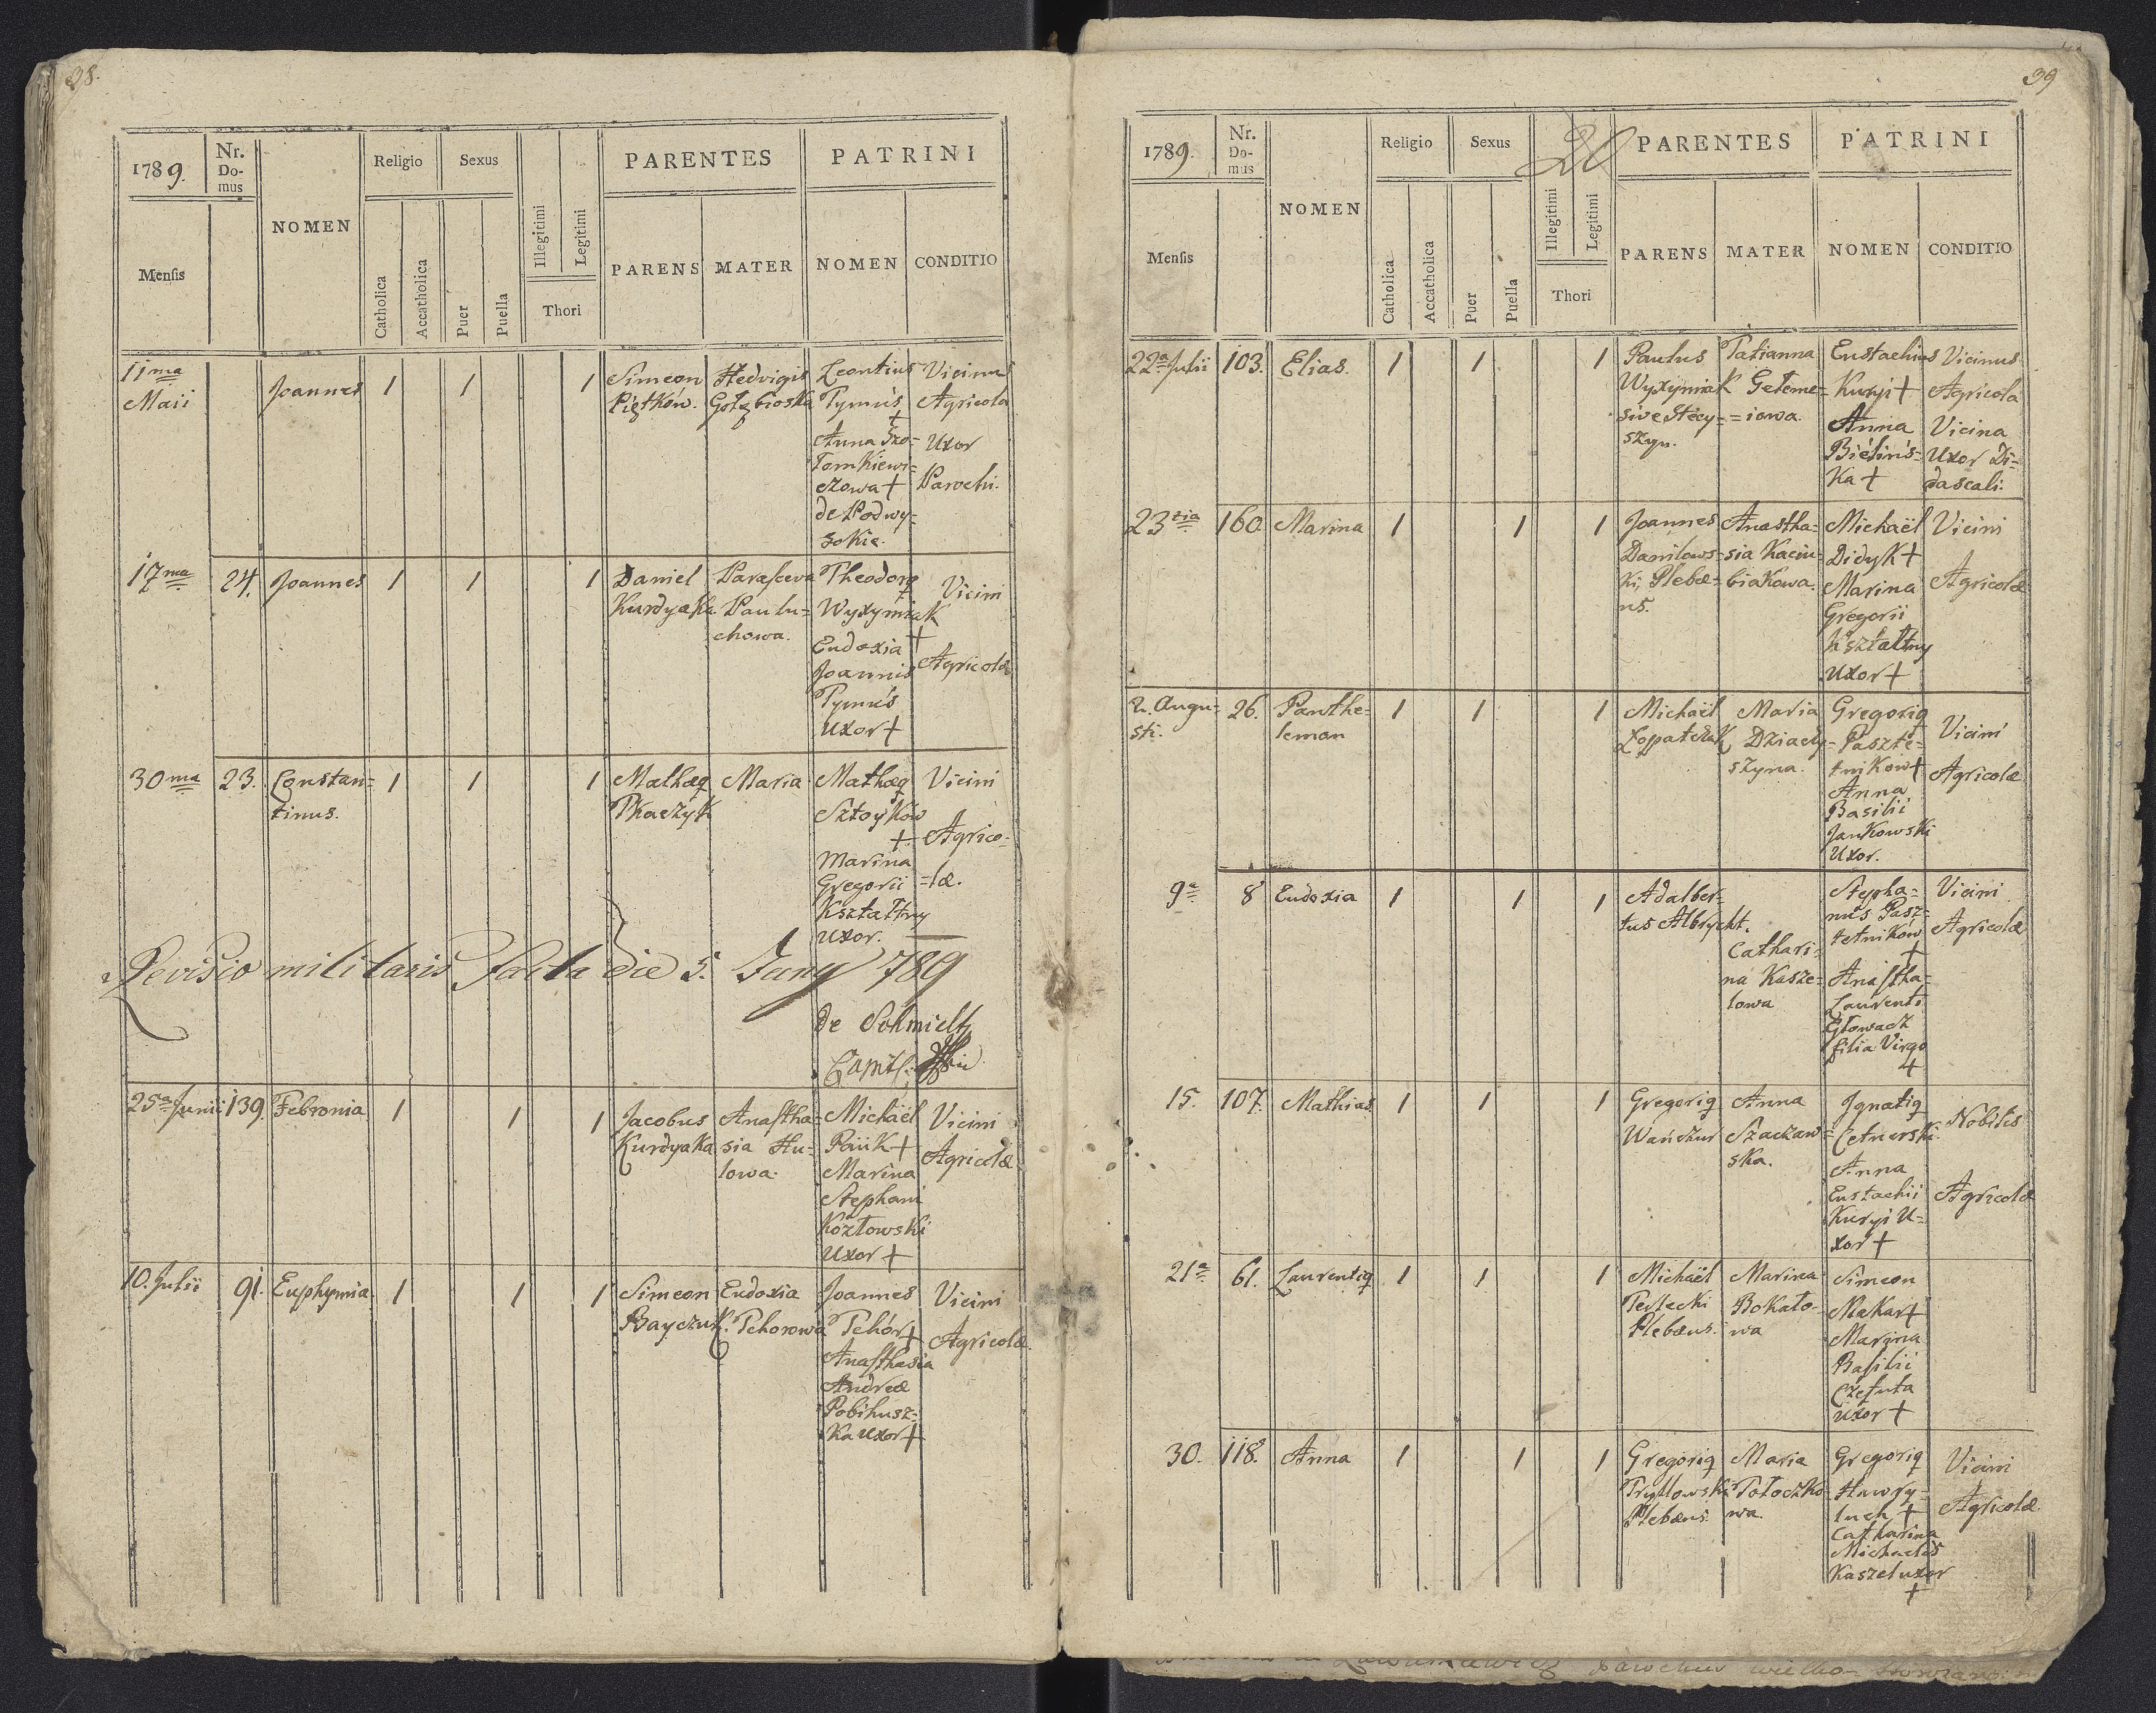 38.
1789.
Nr. Domus
NOMEN
Religio
Sexus
Illegitimi
Legitimi
PARENTES
PATRINI
Mensis
Catholica
Accatholica
Puer
Puella
Thori
PARENS
MATER
NOMEN
CONDITIO
11ma Maii
Joannes
1
1
1
Simeon Piętków.
Hedvigis Gołębioska
Leontius Tymuś +
Anna Szo=
Tomkiewi=
czowa +
de Podwy=
sokie.
Vicinus
Agricola
Uxor
Parochi.
17ma
24.
Joannes
1
1
1
Daniel Kurdyaka
Parasceva Paulu=
chowa.
Theodorq
Wyxymiak +
Eudoxia
Joannis
Tymuś
Uxor +
Vicini
Agricolæ
30ma
23.
Constan=
tinus.
1
1
1
Mathæq
Tkaczyk
Maria
Mathæq
Sztoyków +
Marina
Gregorii
Kształtny
Uxor.
Vicini
Agrico=
=læ.
Revisio militaris facta die 5. Juny 789
de Schmidt
25a Junii
139.
Febronia
1
1
1
Jacobus
Kurdyaka
Anastha=
sia Hu=
lowa.
Michaël
Pańk +
Marina
Stephani
Kozłowski
Uxor +
Vicini
Agricolæ
10. Julii
91.
Euphymia
1
1
1
Simeon
Bayczuk.
Eudoxia
Tchorowa
Joannes
Tchór +
Anasthasia
Andreæ
Pobihusz=
ka Uxor +
Vicini
Agricolæ.
39
20
1789.
Nr. Domus
NOMEN
Religio
Sexus
Illegitimi
Legitimi
PARENTES
PATRINI
Mensis
Catholica
Accatholica
Puer
Puella
Thori
PARENS
MATER
NOMEN
CONDITIO
22a Julii
103.
Elias.
1
1
1
Paulus
Wyxymiak
sive Stecy=
szyn.
Tatianna
Geteme=
=iowa.
Eustachius
Kuryi +
Anna
Bielińs=
ka +
Vicinus
Agricola
Vicina
Uxor Di=
dascali.
23tia
160
Marina
1
1
1
Joannes
Danilows=
ki, Plebæ=
us.
Anastha=
sia Kaciu=
biakowa.
Michaël
Didyk +
Marina
Gregorii
Kształtny
Uxor +
Vicini
Agricolæ
2. Augu=
sti.
26.
Panthe=
lemon
1
1
1
Michaël
Łopatczuk
Maria
Dziady=
szyna.
Gregoriq
Paszte=
tników +
Anna
Basilii
Jankowski
Uxor.
Vicini
Agricolæ
9a
8
Eudoxia
1
1
1
Adalber=
tus Albrycht.
Cathari=
na Kasze=
lowa
Stepha=
nus Pasz=
tetników +
Anastha=
Laurenti
Głowacz
filia Virgo +
Vicini
Agricolæ
15.
107.
Mathias
1
1
1
Gregoriq
Wańczur
Anna
Szaczaw=
ska.
Ignatiq
Cetnerski.
Anna
Eustachii
Kuryi U=
xor +
Nobilis
Agricolæ
21a
61.
Laurentiq
1
1
1
Michaël
Terlecki
Plebæus.
Marina
Bokało=
wa
Simeon
Makar +
Marina
Basilii
Czeluta
Uxor +
30.
118.
Anna
1
1
1
Gregoriq
Tryllowski
Plebæus.
Maria
Tołoczko=
wa.
Gregoriq
Hawry=
luch +
Catharina
Michaelis
Kaszel uxor +
Vicini
Agricolæ